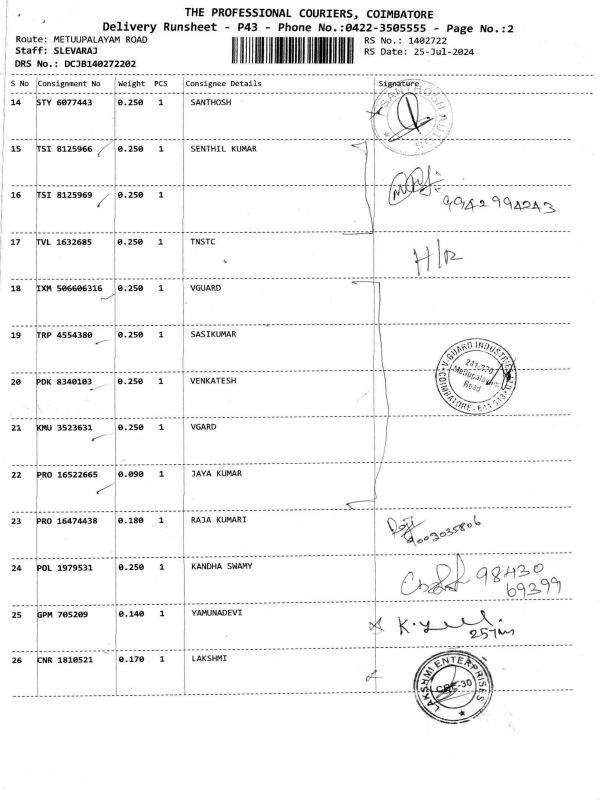 THE PROFESSIONAL COURIERS, COIMBATORE
Delivery Runsheet - P43 - Phone No.:0422-3505555 - Page No.:2
Route: METUUPALAYAM ROAD
Staff: SLEVARAJ
DRS No.: DCJB140272202
RS No.: 1402722
RS Date: 25-Jul-2024
S No Consignment No Weight PCS Consignee Details Signature
14 STY 6077443 0.250 1 SANTHOSH
SANTHOSH AUTOS
15 TSI 8125966 0.250 1 SENTHIL KUMAR
16 TSI 8125969 0.250 1
9942994243
17 TVL 1632685 0.250 1 TNSTC
H/R
18 IXM 506606316 0.250 1 VGUARD
19 TRP 4554380 0.250 1 SASIKUMAR
V-GUARD INDUSTRIES LTD
Mettupalayam
Road
COIMBATORE - 641 043
20 PDK 8340103 0.250 1 VENKATESH
21 KMU 3523631 0.250 1 VGARD
22 PRO 16522665 0.090 1 JAYA KUMAR
23 PRO 16474438 0.180 1 RAJA KUMARI
9003035806
24 POL 1979531 0.250 1 KANDHA SWAMY
98430
69399
25 GPM 705209 0.140 1 YAMUNADEVI
26 CNR 1810521 0.170 1 LAKSHMI
LAKSHMI ENTERPRISES
CBE-30